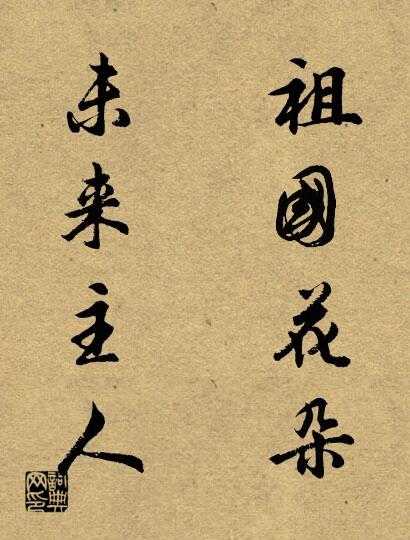 祖國花朵
未来主人